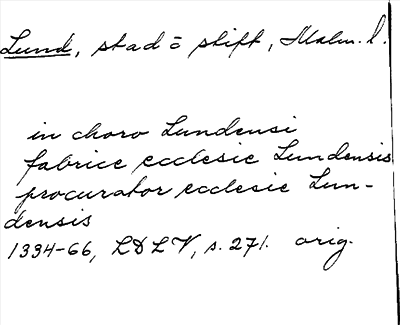 Lund, stad o stift, Malm. l.
in choro Lundensi
fabrice ecclesie Lundensis
procurator ecclesie Lun-
densis
1334-66, LDLV, s. 271. orig.